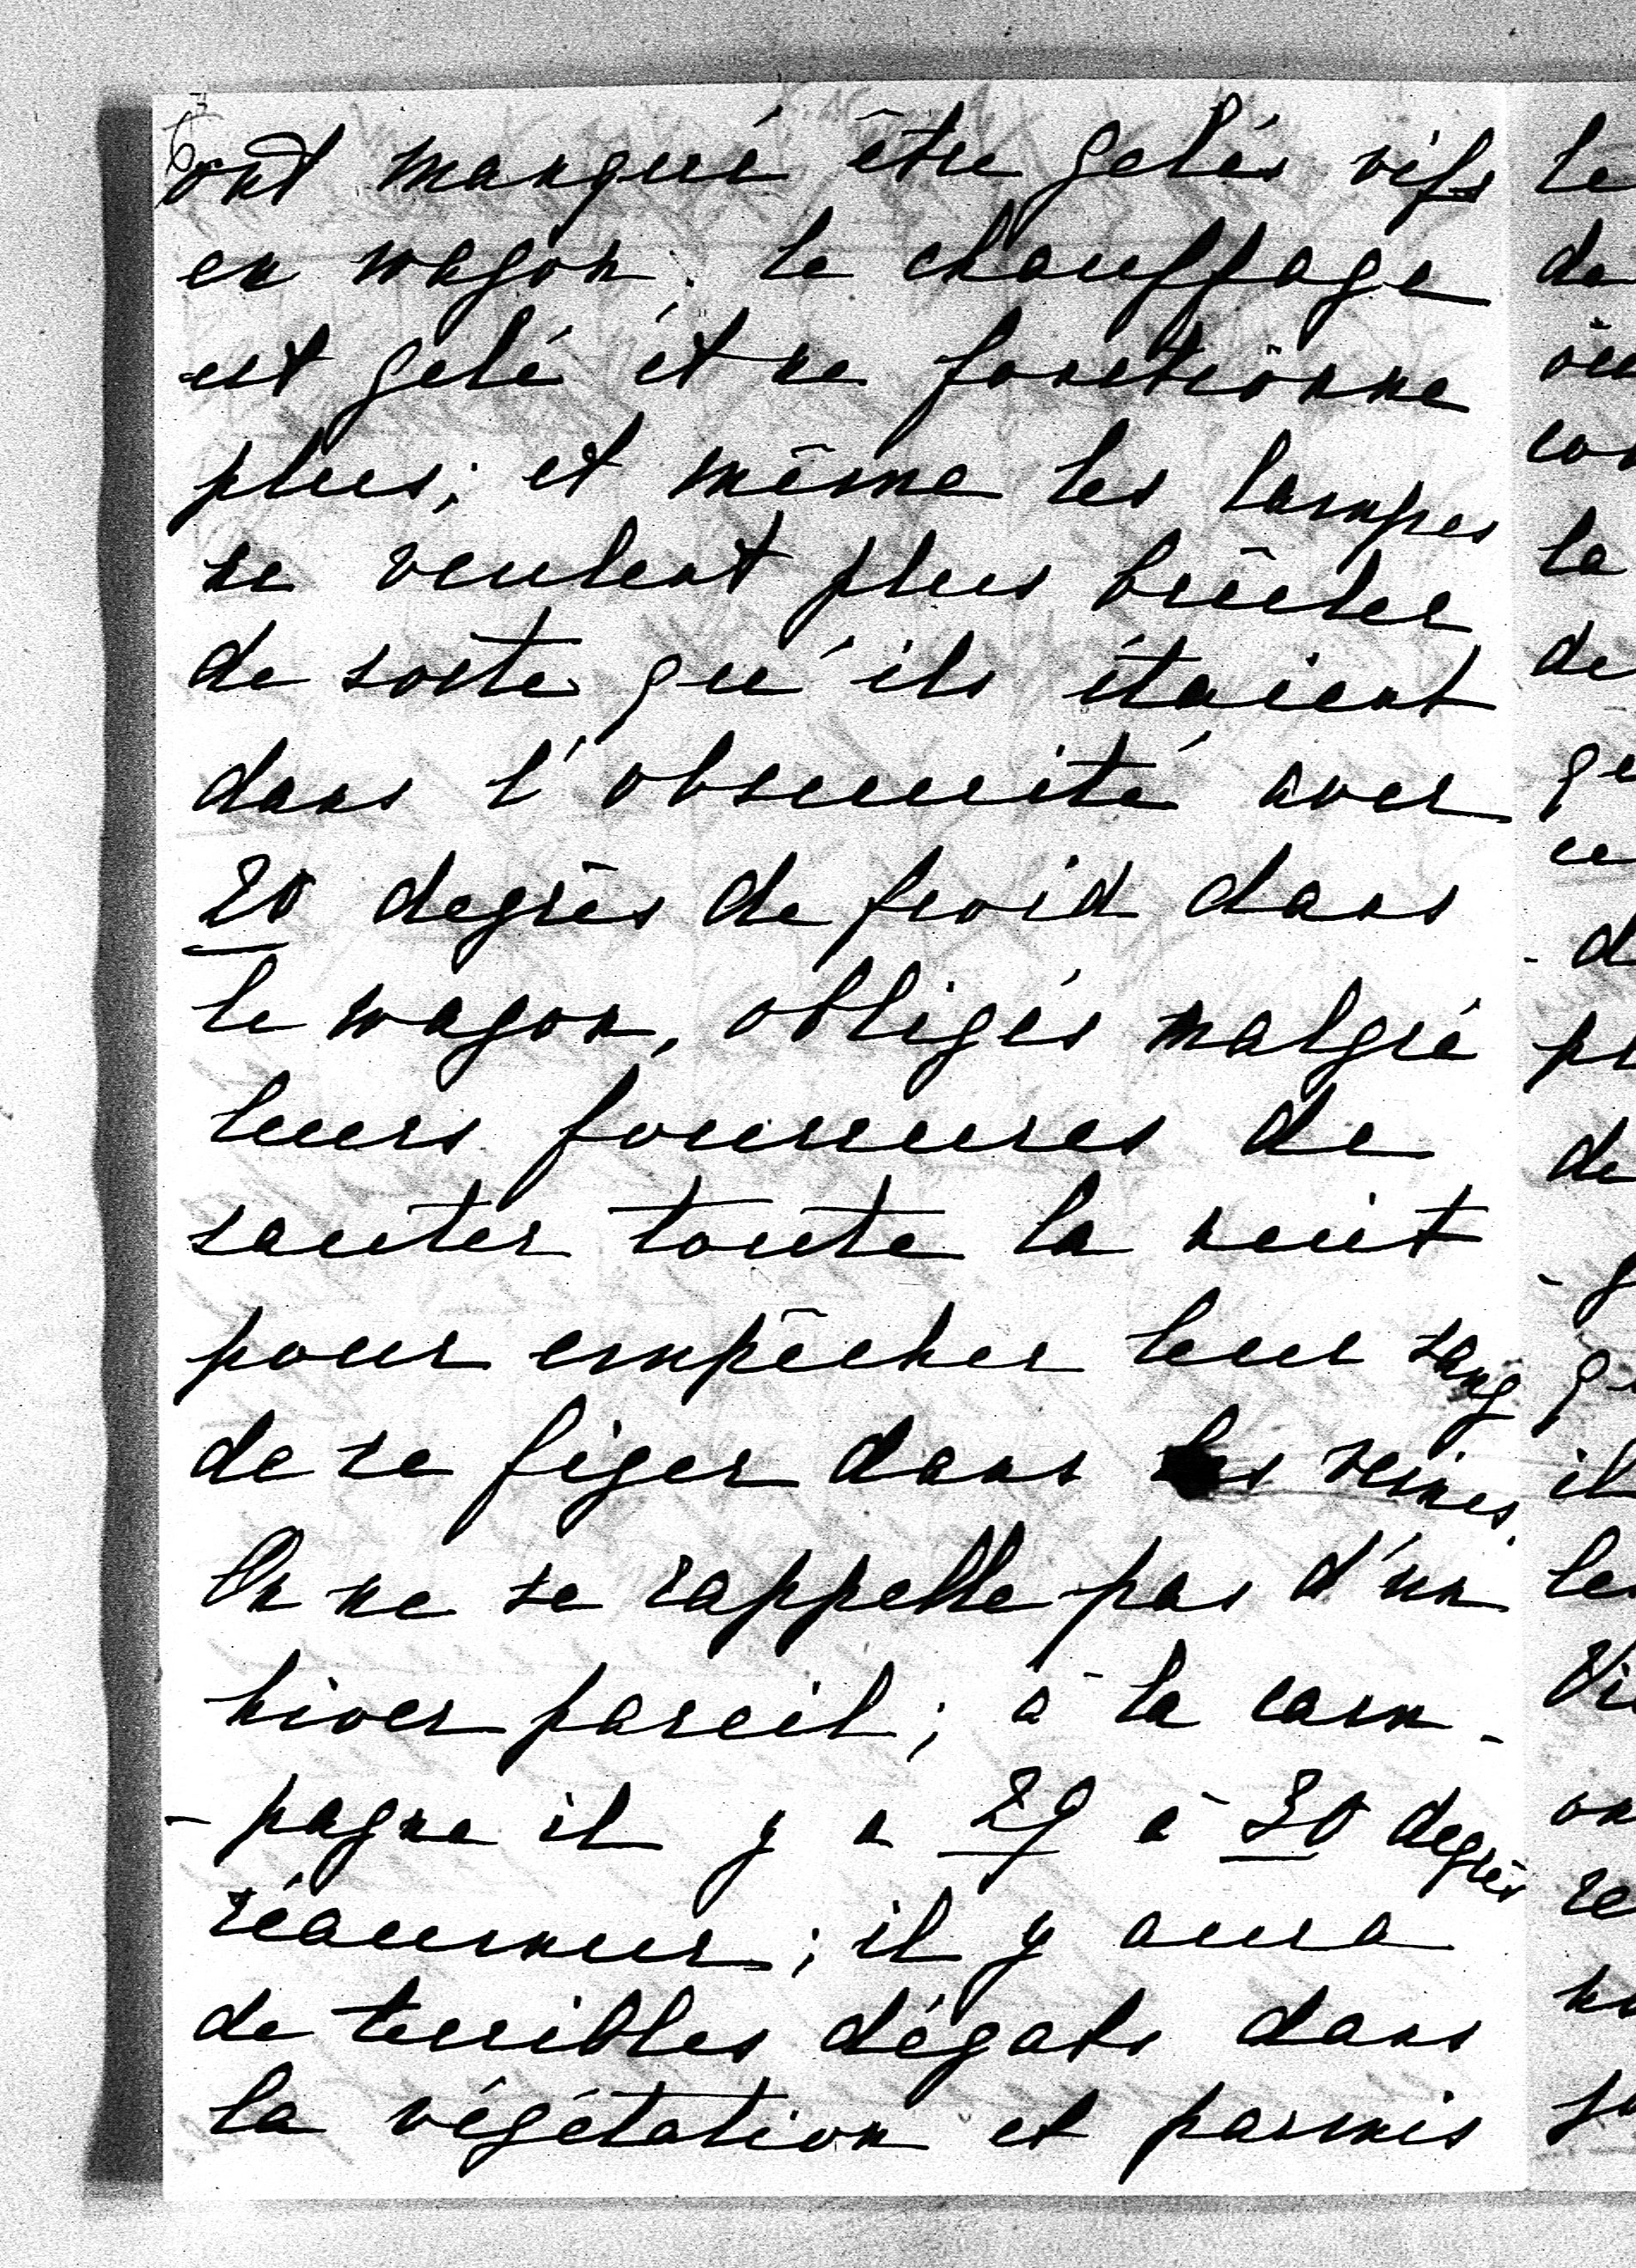 ont manqué être gelés vifs
en wagon; le chauffage
est gelé et ne fonctionne
plus; et même les lampes
ne veulent plus brûler
de sorte qu'ils étaient
dans l'obscurité avec
20 degrès de froid dans
le wagon, obligés malgré
leurs fourrures de
sauter toute la nuit
pour empêcher leur sang
de se figer dans les veines.
On ne se rappelle pas d'un
hiver pareil; à la cam-
-pagne il y a 29 à 30 degrès
réaumur; il y aura
de terribles dégats dans
la végétation et parmis